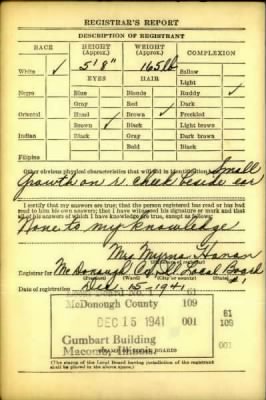 REGISTRAR'S REPORT
DESCRIPTION OF REGISTRANT
RACE HEIGHT (Approx.) WEIGHT (Approx.) COMPLEXION
White ✓ 5' 8" 165 lb Sallow
EYES HAIR Light
Negro Blue Blonde Ruddy ✓
Gray Red Dark
Oriental Hazel Brown ✓ Freckled
Brown ✓ Black Light brown
Indian Black Gray Dark brown
Bald Black
Filipino
Other obvious physical characteristics that will aid in identification Small
Growth on r. cheek beside ear
I certify that my answers are true; that the person registered has read or has had
read to him his own answers; that I have witnessed his signature or mark and that
all of his answers of which I have knowledge are true, except as follows:
None to my knowledge
Mrs Myrna Hanan
Registrar for McDonough Co Ill Local Board
Date of registration Dec 15-1941
McDonough County 109
61
DEC 15 1941 001
109
Gumbart Building 001
Macomb, Illinois
(The stamp of the Local Board having jurisdiction of the registrant
shall be placed in the above space)